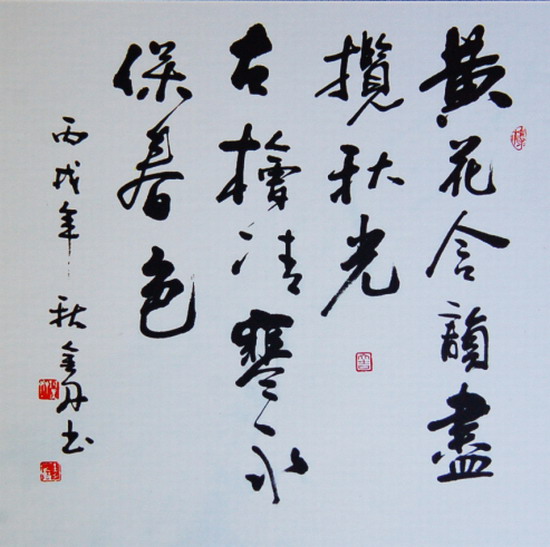 黄花含韻盡
攬秋光
古檜清寒永
保春色
丙戌年秋金丹书